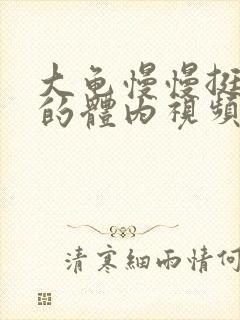 大龟慢慢挺
的體内視頻
清寒細雨情何